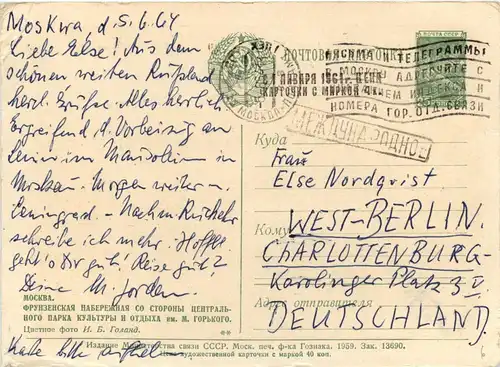 Moskwa d. 5.6.64
Liebe Else! Aus dem
schönen weiten Rußland
herzl. Grüße. Alles herrlich
Ergreifend d. Vorbeizug an
Lenin im Mausoleum in
Moskau. Morgen weiter n.
Leningrad. – Nach m. Rückkehr
schreibe ich mehr. Hoffe
geht's Dir gut! Reise gut?
Deine M. Jorden.
МОСКВА.
ФРУНЗЕНСКАЯ НАБЕРЕЖНАЯ СО СТОРОНЫ ЦЕНТРАЛЬ-
НОГО ПАРКА КУЛЬТУРЫ И ОТДЫХА им. М. ГОРЬКОГО.
Цветное фото И. Б. Голанд.
**
Издание Министерства связи СССР. Моск. печ. ф-ка Гознака. 1959. Зак. 13690.
Цена художественной карточки с маркой 40 коп.
ПОЧТОВАЯ КАРТОЧКА
С 1 ЯНВАРЯ 1961 г. ЦЕНА
КАРТОЧКИ С МАРКОЙ 4 к.
ПИСЬМА ТЕЛЕГРАММЫ
АДРЕСУЙТЕ С
НОМЕРА ГОР. ОТД. СВЯЗИ
МЕЖДУНАРОДНОЕ
Куда
Frau
Else Nordqvist
Кому
WEST-BERLIN.
CHARLOTTENBURG-
Karolinger Platz 3 V
Адрес отправителя
DEUTSCHLAND.